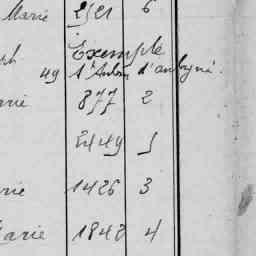 Marie 2521 6
Exemple
ph
49 St Antoin d'aubigné
rie 877 2
2449 5
rie 1426 3
Marie 1842 4